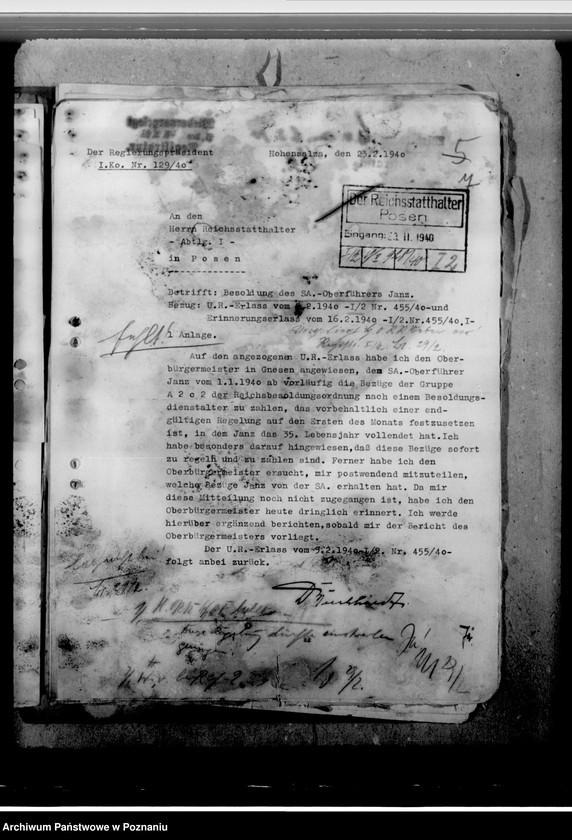 Der Regierungspräsident Hohensalza, den 23.2.1940
I.Ko. Nr. 129/40
5
Der Reichsstatthalter
Posen
Eingang: 11. 1940
I 2
An den
Herrn Reichsstatthalter
- Abtlg. I -
in Posen
Betrifft: Besoldung des SA.-Oberführers Janz.
Bezug: U.R.-Erlass vom .2.1940 -I/2 Nr. 455/40-und
Erinnerungserlass vom 16.2.1940 -I/2.Nr.455/40,I-
fehlt!
1 Anlage.
Auf den angezogenen U.R.-Erlass habe ich den Ober-
bürgermeister in Gnesen angewiesen, dem SA.-Oberführer
Janz vom 1.1.1940 ab vorläufig die Bezüge der Gruppe
A 2 c 2 der Reichsbesoldungsordnung nach einem Besoldungs-
dienstalter zu zahlen, das vorbehaltlich einer end-
gültigen Regelung auf den Ersten des Monats festzusetzen
ist, in dem Janz das 35. Lebensjahr vollendet hat.Ich
habe besonders darauf hingewiesen,daß diese Bezüge sofort
zu regeln und zu zahlen sind. Ferner habe ich den
Oberbürgermeister ersucht, mir postwendend mitzuteilen,
welche Bezüge Janz von der SA. erhalten hat. Da mir
diese Mitteilung noch nicht zugegangen ist, habe ich den
Oberbürgermeister heute dringlich erinnert. Ich werde
hierüber ergänzend berichten,sobald mir der Bericht des
Oberbürgermeisters vorliegt.
Der U.R.-Erlass vom 9.2.1940-I/2. Nr. 455/40-
folgt anbei zurück.
Ja!
Archiwum Państwowe w Poznaniu